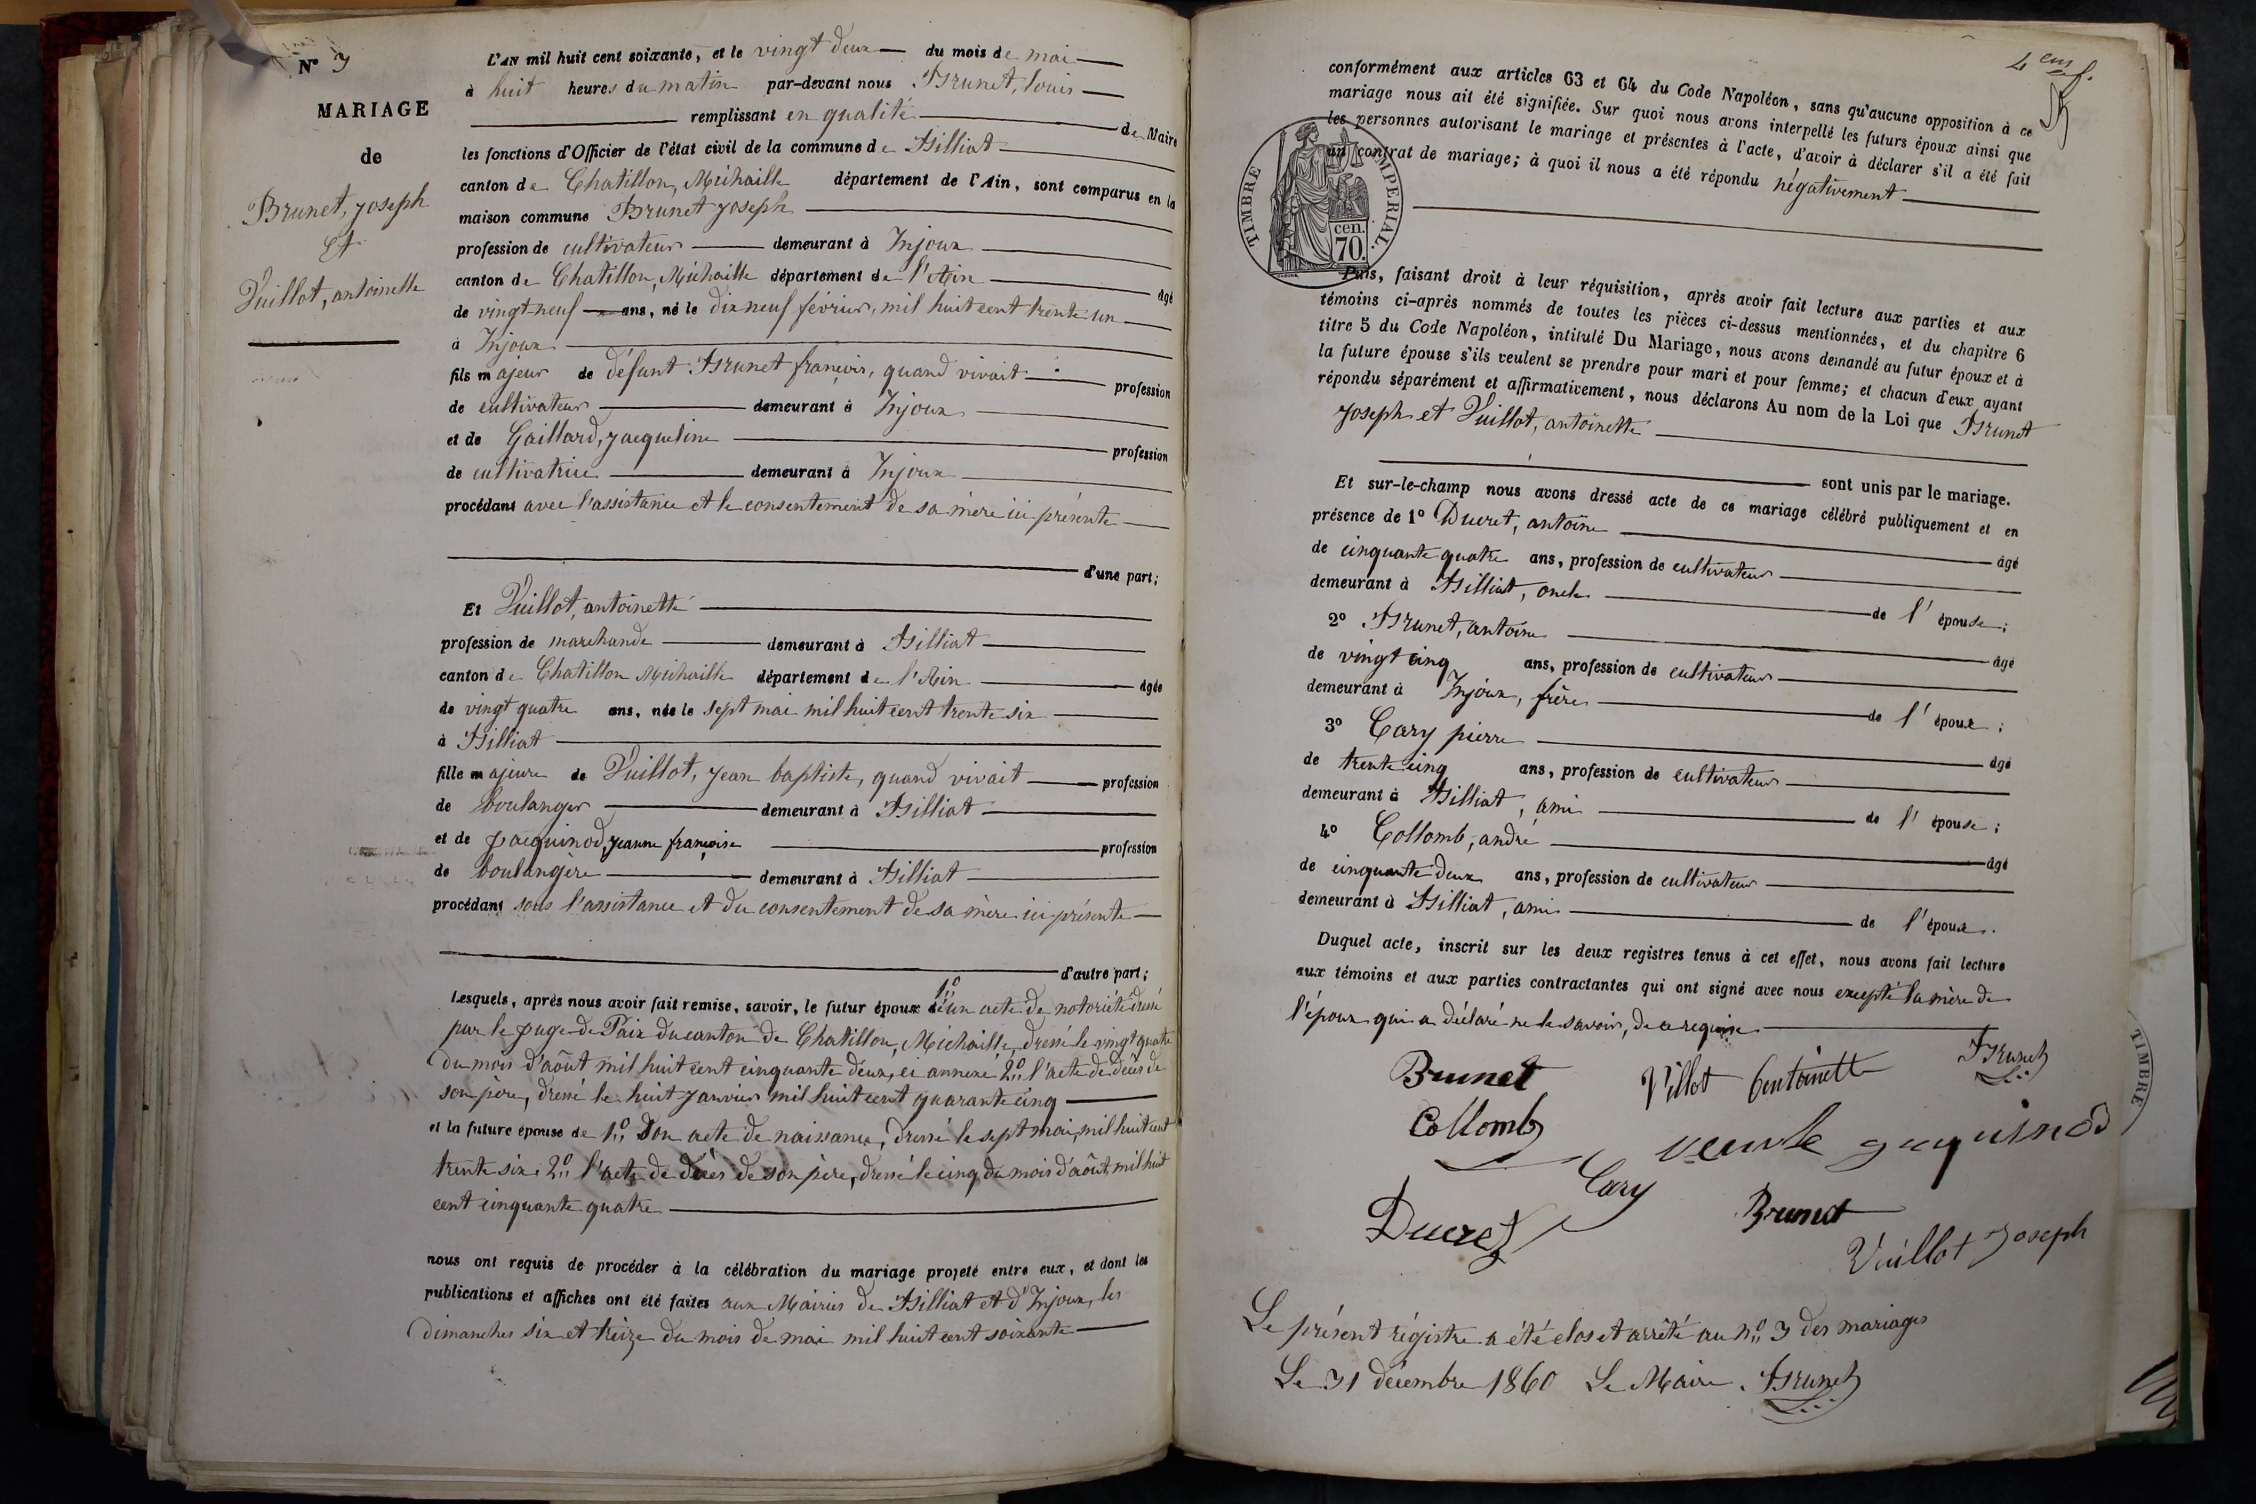 N° 3
MARIAGE
de
Brunet, joseph
et
Vuillot, antoinette
L'AN mil huit cent soixante, et le vingt deux du mois de mai
à huit heures du matin par-devant nous Brunet, louis
remplissant en qualité de Maire
les fonctions d'Officier de l'état civil de la commune de Billiat
canton de Chatillon, Michaille département de l'Ain, sont comparus en la
maison commune Brunet joseph
profession de cultivateur demeurant à Injoux
canton de Chatillon, Michaille département de l'Ain âgé
de vingt-neuf ans, né le dix neuf fevrier, mil huit cent trente un
à Injoux
fils majeur de défunt Brunet françois, quand vivait profession
de cultivateur demeurant à Injoux
et de Gaillard, jacqueline profession
de cultivatrice demeurant à Injoux
procédant avec l'assistance et le consentement de sa mère ici présente
d'une part;
Et Vuillot, antoinette
profession de marchande demeurant à Billiat
canton de Chatillon Michaille département de l'Ain âgée
de vingt quatre ans, née le sept mai mil huit cent trente six
à Billiat
fille majeure de Vuillot, jean baptiste, quand vivait profession
de boulanger demeurant à Billiat
et de jacquinod, jeanne françoise profession
de boulangère demeurant à Billiat
procédant sous l'assistance et du consentement de sa mère ici présente
d'autre part;
Lesquels, après nous avoir fait remise, savoir, le futur époux 1° d'un acte de notoriété dressé
par le juge de Paix du canton de Chatillon, Michaille, dressé le vingt quatre
du mois d'août mil huit cent cinquante deux, ci annexé 2° l'acte de décès de
son père, dressé le huit janvier mil huit cent quarante cinq
et la future épouse de 1° Son acte de naissance, dressé le sept mai, mil huit cent
trente six. 2° l'acte de décès de son père, dressé le cinq du mois d'août mil huit
cent cinquante quatre
nous ont requis de procéder à la célébration du mariage projeté entre eux, et dont les
publications et affiches ont été faites aux Mairies de Billiat et d'Injoux, les
dimanches six et treize du mois de mai mil huit cent soixante
4 enf.
conformément aux articles 63 et 64 du Code Napoléon, sans qu'aucune opposition à ce
mariage nous ait été signifiée. Sur quoi nous avons interpellé les futurs époux ainsi que
les personnes autorisant le mariage et présentes à l'acte, d'avoir à déclarer s'il a été fait
un contrat de mariage; à quoi il nous a été répondu négativement
TIMBRE IMPERIAL.
cen.
70.
Puis, faisant droit à leur réquisition, après avoir fait lecture aux parties et aux
témoins ci-après nommés de toutes les pièces ci-dessus mentionnées, et du chapitre 6
titre 5 du Code Napoléon, intitulé Du Mariage, nous avons demandé au futur époux et à
la future épouse s'ils veulent se prendre pour mari et pour femme; et chacun d'eux ayant
répondu séparément et affirmativement, nous déclarons Au nom de la Loi que Brunet
joseph et Vuillot, antoinette
sont unis par le mariage.
Et sur-le-champ nous avons dressé acte de ce mariage célébré publiquement et en
présence de 1° Ducret, antoine âgé
de cinquante quatre ans, profession de cultivateur
demeurant à Billiat, oncle de l'épouse;
2° Brunet, antoine âgé
de vingt cinq ans, profession de cultivateur
demeurant à Injoux, frère de l'époux;
3° Cary pierre âgé
de trente cinq ans, profession de cultivateur
demeurant à Billiat, ami de l'épouse;
4° Collomb, andré âgé
de cinquante deux ans, profession de cultivateur
demeurant à Billiat, ami de l'époux.
Duquel acte, inscrit sur les deux registres tenus à cet effet, nous avons fait lecture
aux témoins et aux parties contractantes qui ont signé avec nous excepté la mère de
l'époux qui a déclaré ne le savoir, de ce requise
Brunet Villot Antoinette Brunet
Collomb veuve jaquinod
Cary
Ducret Brunet
Vuillot Joseph
Le présent régistre a été clos et arrêté au n° 3 des mariages
Le 31 décembre 1860 Le Maire Brunet
TIMBRE